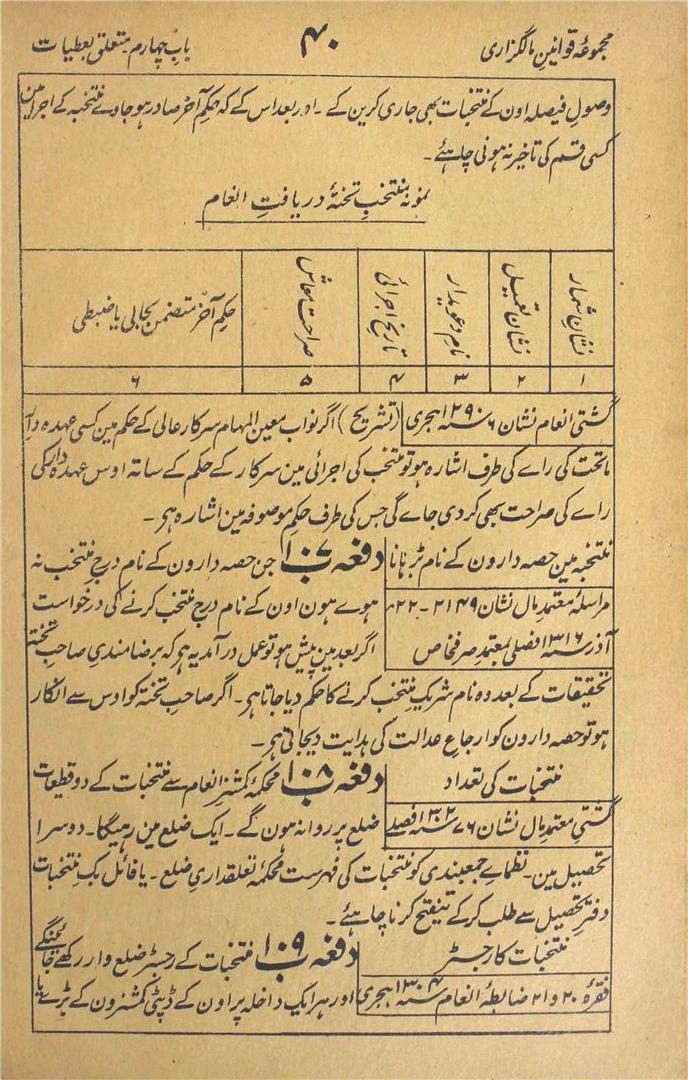 مجموعۂ قوانین مالگزاری
۴۰
باب چہارم متعلق بعطیات
وصول فیصلہ اون کے منتخبات بھی جاری کرین گے ۔ اور بعد اس کے کہ حکم آخر صادر ہوجاوے منتخبہ کے اجرا مین
کسی قسم کی تاخیر نہ ہونی چاہئے ۔
نمونہ منتخب تختۂ دریافت انعام
نشان شمار
نشان تعمیل
نام دعویدار
تاریخ اجرائی
صراحت معاش
حکم آخر متضمن بحالی یا ضبطی
۱
۲
۳
۴
۵
۶
گشتی انعام نشان ۶ سنہ ۱۲۹۰ ہجری (تشریح) اگر نواب معین المہام سرکار عالی کے حکم مین کسی عہدہ دار
ماتحت کی راے کی طرف اشارہ ہو تو منتخب کی اجرائی مین سرکار کے حکم کے ساتہ اوس عہدہ دار کی
راے کی صراحت بھی کردی جاے گی جس کی طرف حکم موصوفہ مین اشارہ ہر ۔
منتخبہ مین حصہ دارون کے نام بڑہانا
دفعہ ۱۰۷ جن حصہ دارون کے نام درج منتخب نہ
مراسلۂ معتمد مال نشان ۲۱۴۹ - ۲۲
ہوے ہون اون کے نام درج منتخب کرنے کی درخواست
آذر سنہ ۱۳۱۶ فصلی بمعتمد صرفخاص
اگر بعد مین پیش ہو تو عمل درآمد یہ ہر کہ برضامندی صاحب تختہ
تحقیقات کے بعد وہ نام شریک منتخب کرنے کا حکم دیا جاتا ہر ۔ اگر صاحب تختہ کو اوس سے انکار
ہو تو حصہ دارون کو ارجاع عدالت کی ہدایت دیجاتی ہر ۔
منتخبات کی تعداد
دفعہ ۱۰۸ محکمۂ کمشنر انعام سے منتخبات کے دو قطعات
گشتی معتمد مال نشان ۷ سنہ ۱۳۰۲ فصلی
ضلع پر روانہ ہون گے ۔ ایک ضلع مین رہیگا ۔ دوسرا
تحصیل مین ۔ نظماے جمعبندی کو منتخبات کی فہرست محکمۂ تعلقداری ضلع ۔ یا فائل بک منتخبات
دفتر تحصیل سے طلب کرکے تنقیح کرنا چاہئے ۔
منتخبات کا رجسٹر
دفعہ ۱۰۹ منتخبات کے رجسٹر ضلع وار رکھے جائینگے
فقرہ ۲۰ و ۲۱ ضابطۂ انعام سنہ ۱۳۰۴ ہجری
اور ہر ایک داخلہ پر اون کے ڈپٹی کمشنرون کے بڑے یا